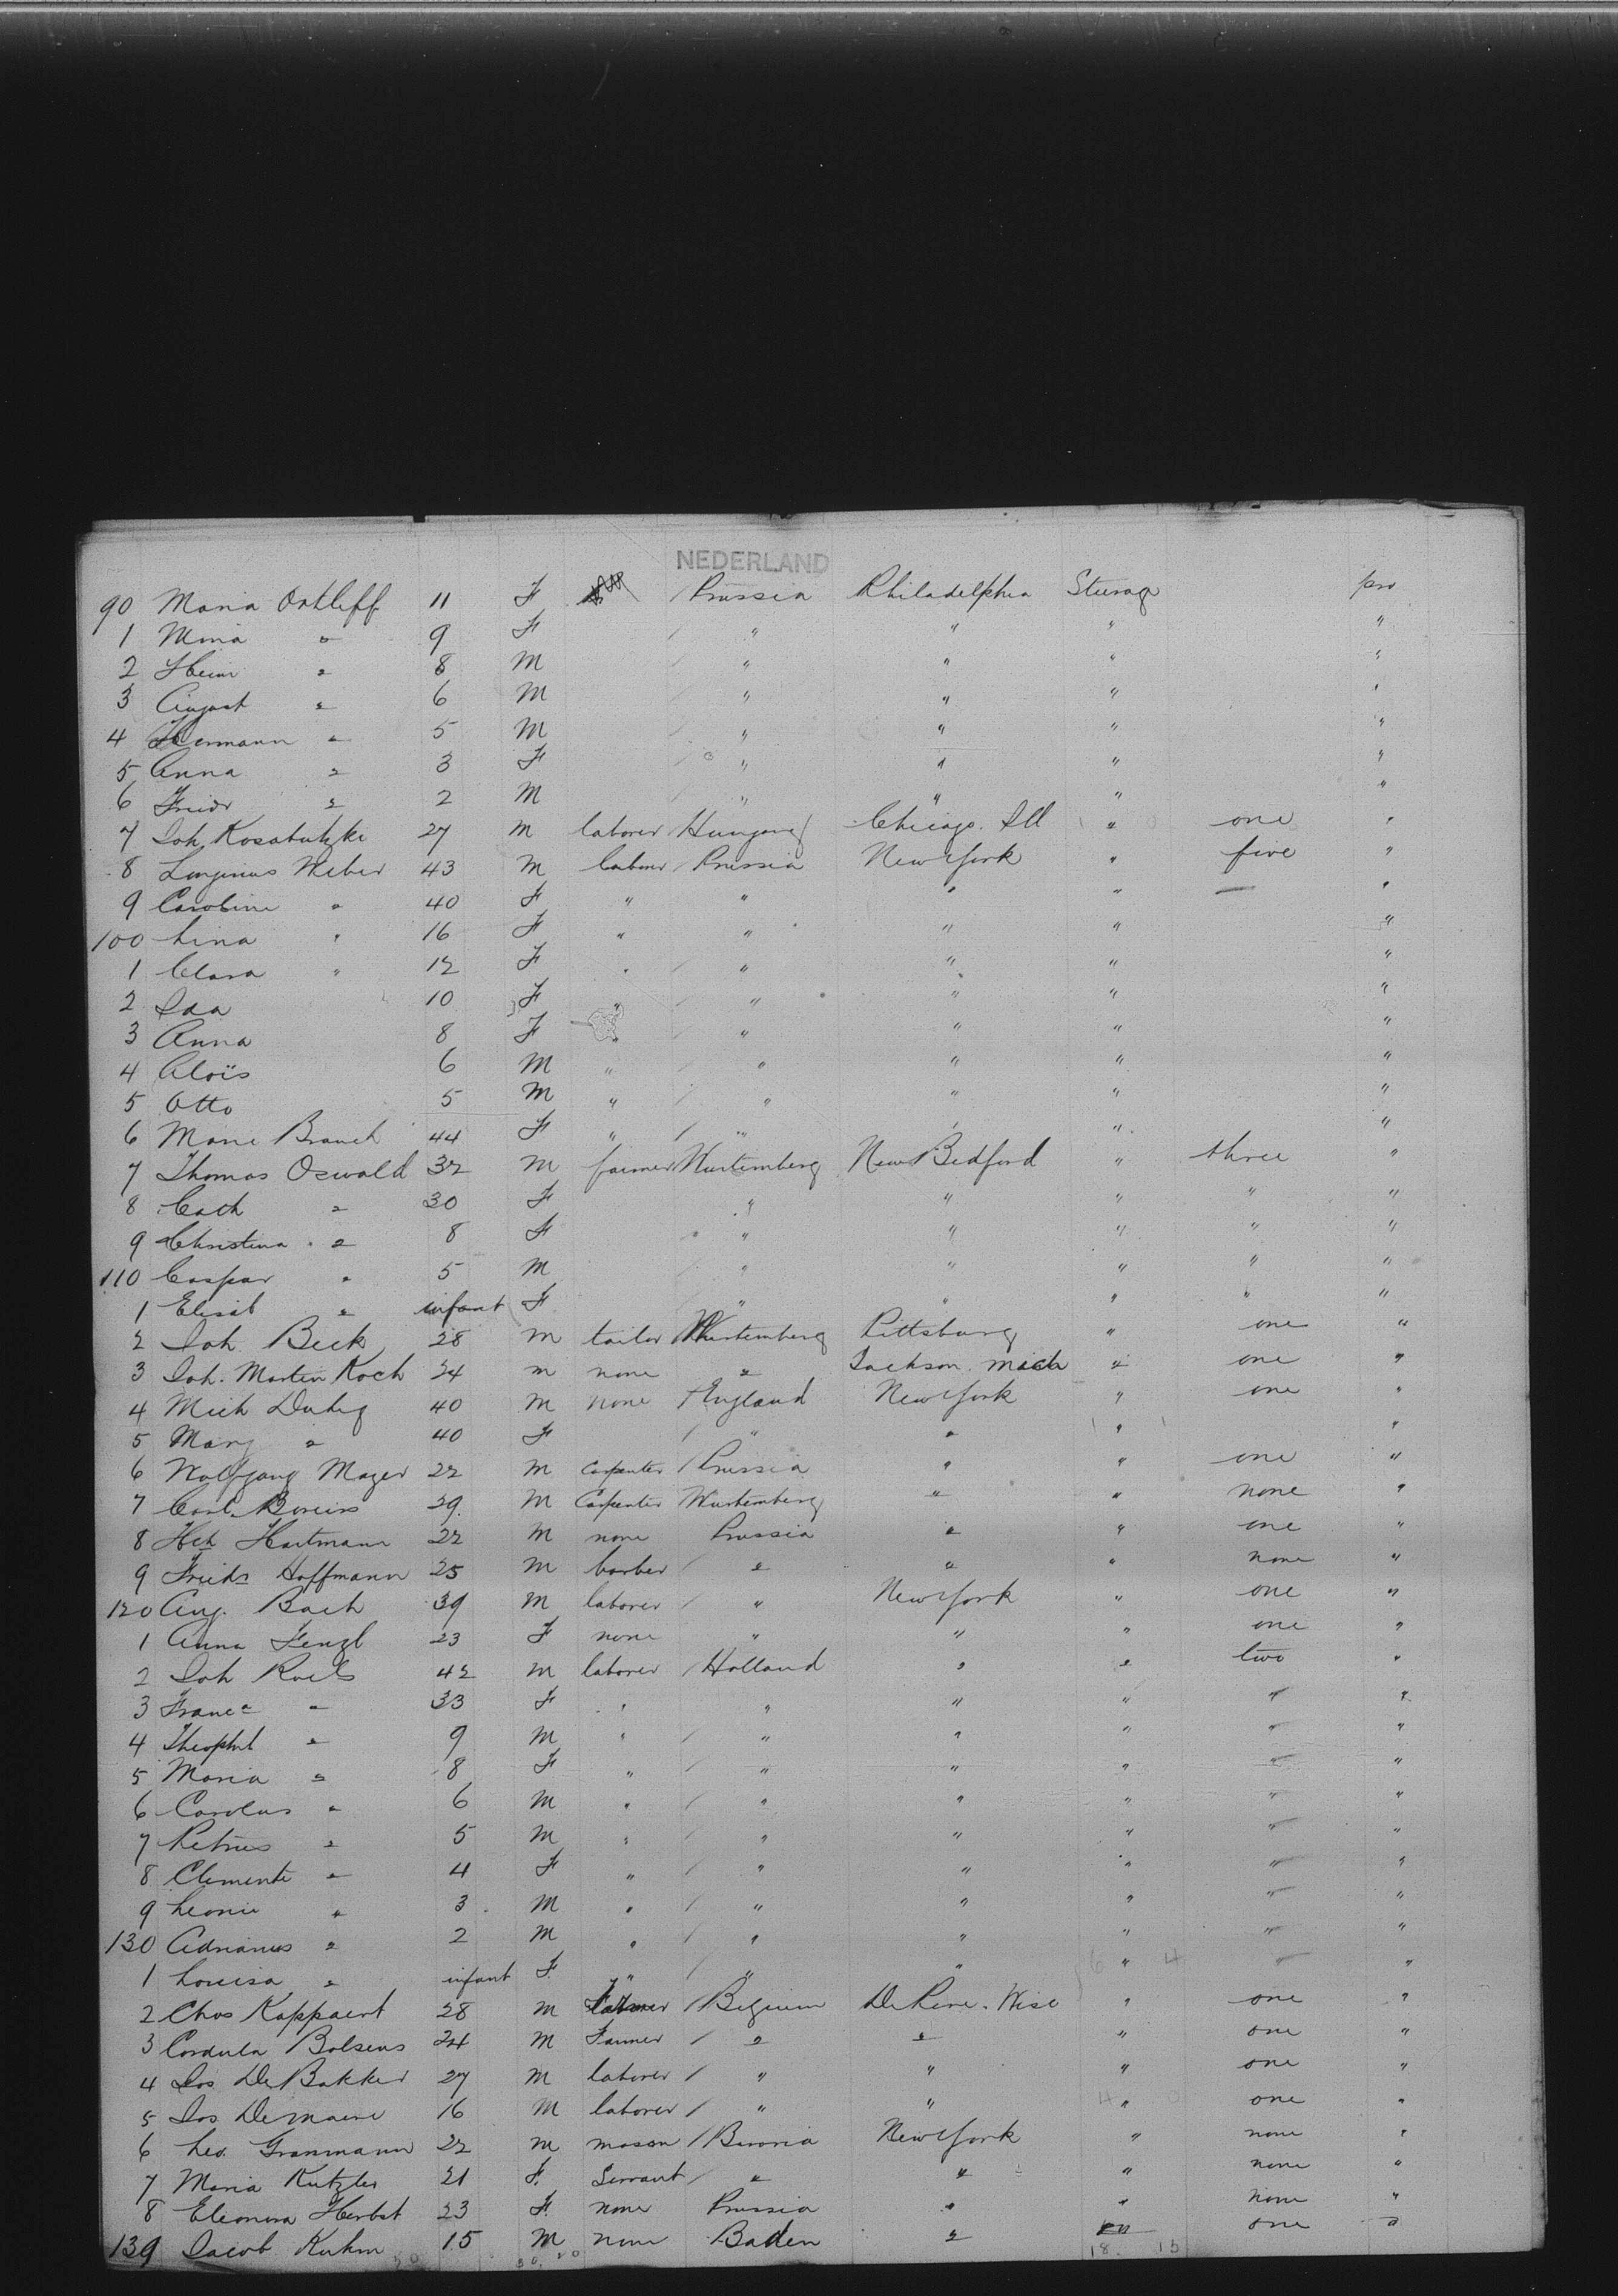 NEDERLAND
90 Maria Ortlieff 11 F Prussia Philadelphia Steerage pro
1 Mina " 9 F " " " "
2 Heinr " 8 M " " " "
3 August " 6 M " " " "
4 Hermann " 5 M " " " "
5 Anna " 3 F " " " "
6 Friedr " 2 M " " " "
7 Joh. Kosatutzki 27 M laborer Hungary Chicago. Ill " one "
8 Longinus Weber 43 M labour Prussia New York " five "
9 Caroline " 40 F " " " " — "
100 Lina " 16 F " " " " "
1 Clara " 12 F " " " " "
2 Ida 10 F " " " " "
3 Anna 8 F " " " "
4 Aloïs 6 M " " " " "
5 Otto 5 M " " " " "
6 Marie Brauch 44 F " " " " "
7 Thomas Oswald 32 M farmer Wurtemberg New Bedford " three "
8 Cath " 30 F " " " " "
9 Christina " 8 F " " " " "
110 Caspar " 5 M " " " " "
1 Elisab " infant F " " " " "
2 Joh. Beck 28 M tailor Wurtemberg Pittsburg " one "
3 Joh. Martin Koch 24 M none " Jackson. Mich " one "
4 Mich Duhig 40 M none England New York " one "
5 Mary " 40 F " " " "
6 Wolfgang Mazer 22 M carpenter Prussia " " one "
7 Carl 29. M Carpenter Wurtemberg " " none "
8 Hch Hartmann 22 M none Prussia " " one "
9 Friedr Hoffmann 25 M barber " " " none "
120 Aug. Bach 39 M laborer " New York " one "
1 Anna Fenzl 23 F none " " " one "
2 Joh Roels 42 M laborer Holland " " two "
3 Franca " 33 F " " " " " "
4 Theophil " 9 M " " " " " "
5 Maria " 8 F " " " " " "
6 Carolus " 6 M " " " " " "
7 Petrus " 5 M " " " " " "
8 Clemente " 4 F " " " " " "
9 Leonie " 3 M " " " " " "
130 Adrianus " 2 M " " " " " "
1 Louisa " infant F. " " " " " "
2 Chas Kappaert 28 M Farmer Belgium De Pere. Wisc " one "
3 Cordula Bolsens 24 M Farmer " " " one "
4 Jos De Bakker 27 M laborer " " " one "
5 Jos Demaere 16 M laborer " " " one "
6 Leo. Granmann 22 M mason Bavaria New York " none "
7 Maria Kutzler 21 F. Servant " " " none "
8 Eleonora Herbst 23 F. none Prussia " " none "
139 Jacob Kuhn 15 M none Baden " " one "